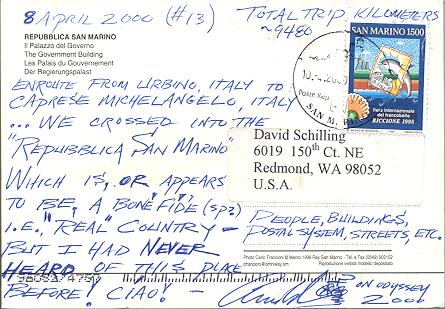 8 APRIL 2000 (#13)
TOTAL TRIP KILOMETERS
~9480
REPUBBLICA SAN MARINO
Il Palazzo del Governo
The Government Building
Les Palais du Gouvernement
Der Regierungspalast
SAN MARINO 1500
fiera internazionale
del francobollo
RICCIONE 1998
Poste
SAN M.
ENROUTE FROM URBINO, ITALY TO
CAPRESE MICHELANGELO, ITALY
... WE CROSSED INTO THE
"REPUBBLICA SAN MARINO"
WHICH IS, OR APPEARS
TO BE, A BONE "FIDE (SP?)
I.E., "REAL" COUNTRY -
BUT I HAD NEVER
HEARD OF THIS PLACE
BEFORE! CIAO! -
David Schilling
6019 150th Ct. NE
Redmond, WA 98052
U.S.A.
PEOPLE, BUILDINGS,
POSTAL SYSTEM, STREETS, ETC.
Photo Carlo Franconi @ Marzo 1998 Ray San Marino - Tel. e Fax (0549) 902152
cfranconi@omniway.sm
Riproduzione vietata modello depositato.
ON ODYSSEY
2000